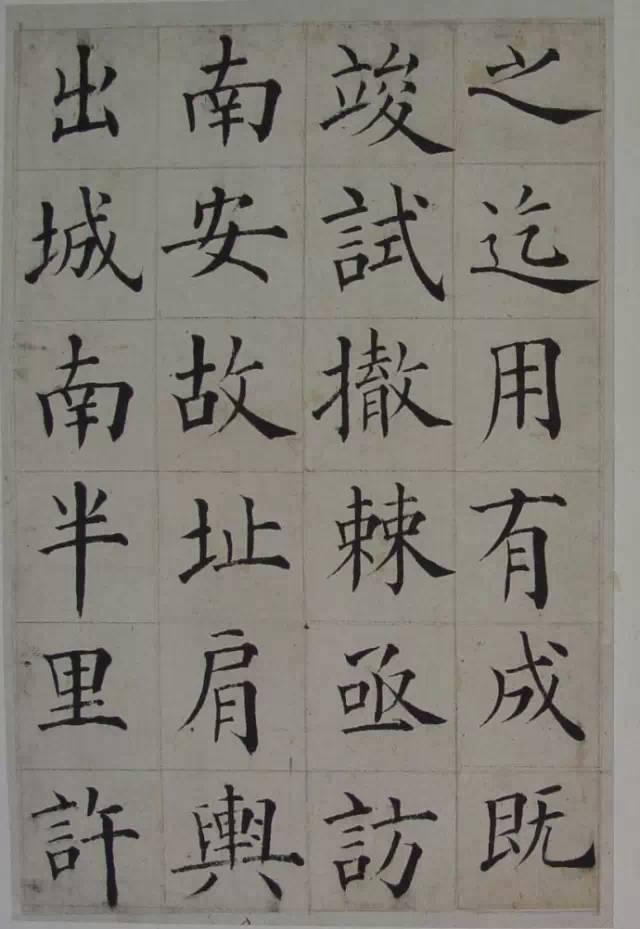 之迄用有成既
竣試撤棘亟訪
南安故址肩輿
出城南半里許